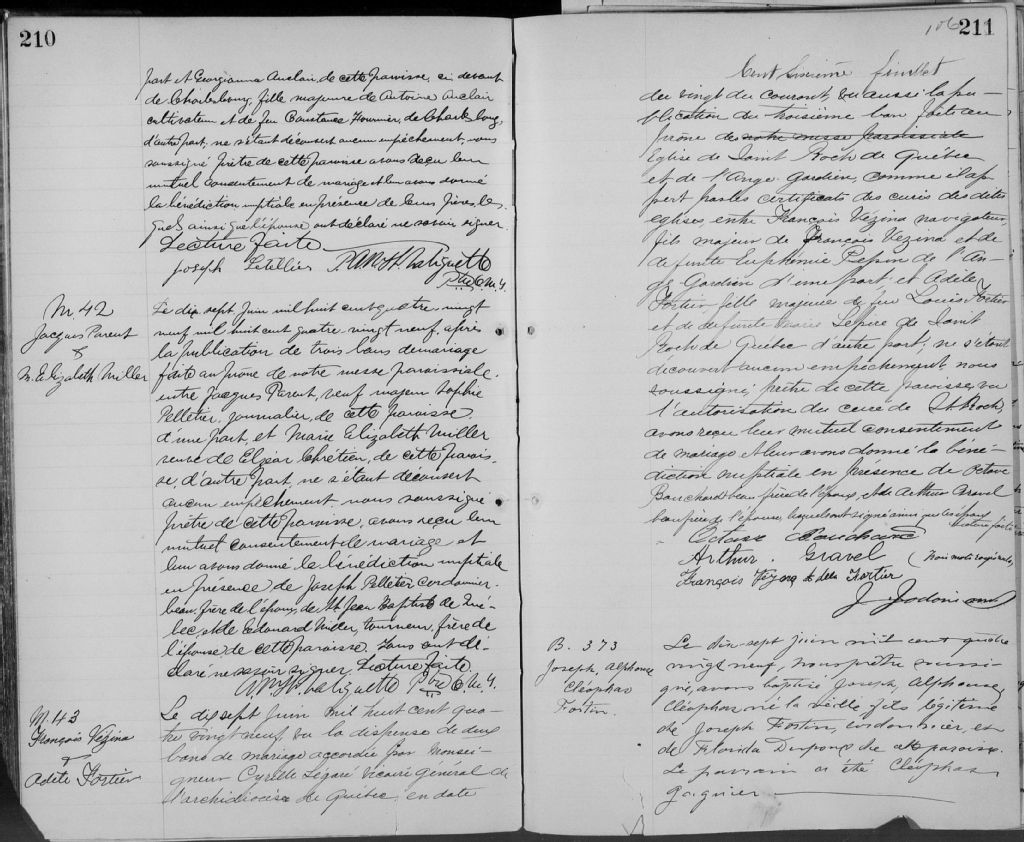 210
part et Georgianna Auclair, de cette paroisse, ci devant
de Charlesbourg, fille majeure de Antoine Auclair
cultivateur et de feu Constance Fournier, de Charlesbourg,
d'autre part, ne s'étant découvert aucun empêchement, nous
soussigné prêtre de cette paroisse avons reçu leur
mutuel consentement de mariage et leur avons donné
la bénédiction nuptiale en présence de leurs pères, les
quels ainsi que l'épouse ont déclaré ne savoir signer.
Lecture faite
Joseph Letellier
Ptre
M 42
Jacques Parent
&
M. Elizabeth Miller
Le dix sept Juin mil huit cent quatre vingt
neuf mil huit cent quatre vingt neuf, après
la publication de trois bans de mariage
faite au prône de notre messe paroissiale
entre Jacques Parent, veuf majeur Sophie
Pelletier, journalier, de cette paroisse,
d'une part, et Marie Elizabeth Miller
veuve de Elzéar Chrétien, de cette parois-
se, d'autre part, ne s'étant découvert
aucun empêchement nous soussigné
prêtre de cette paroisse, avons reçu leur
mutuel consentement de mariage et
leur avons donné la bénédiction nuptiale
en présence de Joseph Pelletier cordonnier
beau frère de l'époux, de St Jean Baptiste de Qué-
bec, et de Edouard Miller, tourneur, frère de
l'épouse de cette paroisse. Tous ont dé-
claré ne savoir signer. Lecture faite.
Ptre
M. 43
François Vézina
&
Adèle Fortier
Le dix sept Juin mil huit cent qua-
tre vingt neuf vu la dispense de deux
bans de mariage accordée par Monsei-
gneur Cyrille Légaré Vicaire général de
l'archidiocèse de Québec, en date
106
211
Cent sixième feuillet
du vingt du courant, vu aussi la pu-
blication du troisième ban faite au
prône des notre messe paroissiale
Eglise de Saint Roch de Québec
et de l'Ange-Gardien, comme il ap
pert par les certificats des curés des dites
églises entre François Vézina navigateur,
fils majeur de François Vézina et de
défunte Euphémie Pepin de l'An-
ge Gardien d'une part; et Adèle
Fortier, fille majeure de feu Louis Fortier
et de défunte Marie Lepire de Saint
Roch de Québec d'autre part; ne s'étant
découvert aucun empêchement nous
soussigné, prêtre de cette paroisse, vu
l'autorisation du curé de St Roch,
avons reçu leur mutuel consentement
de mariage et leur avons donné la béné-
diction nuptiale en présence de Octave
Bouchard beau frère de l'époux, et de Arthur Gravel
beau frère de l'épouse, lesquels ont signé ainsi que les époux
lecture faite
Octave Bouchard
Arthur Gravel (trois mots rayés nuls)
François Vézina Adèle Fortier
B. 373
Joseph, Alphonse
Cléophas
Fortin.
Le dix-sept juin mil cent quatre
vingt neuf, nous prêtre soussi-
gné, avons baptisé Joseph, Alphonse,
Cléophas né la veille fils légitime
de Joseph Fortin, cordonnier, et
de Florida Dupont de cette paroisse.
Le parrain a été Cléophas
Gagnier